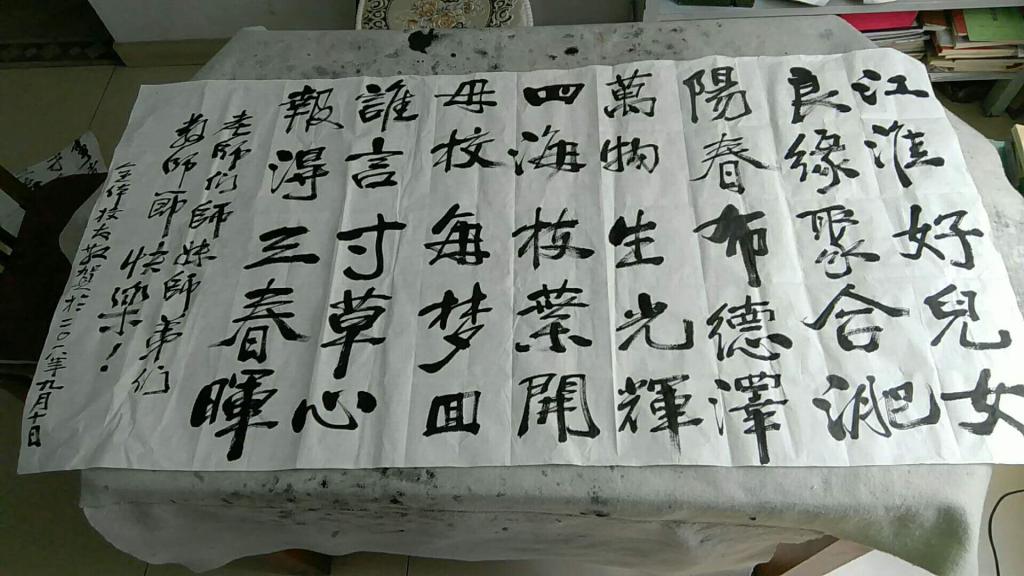 江淮好兒女
良緣聚合淝
陽春布德澤
萬物生光輝
四海枝葉開
母校每梦回
誰言寸草心
報得三春暉
老師们師妹師弟们
教師節快樂！
全体校友敬贺於二〇一八年九月十日